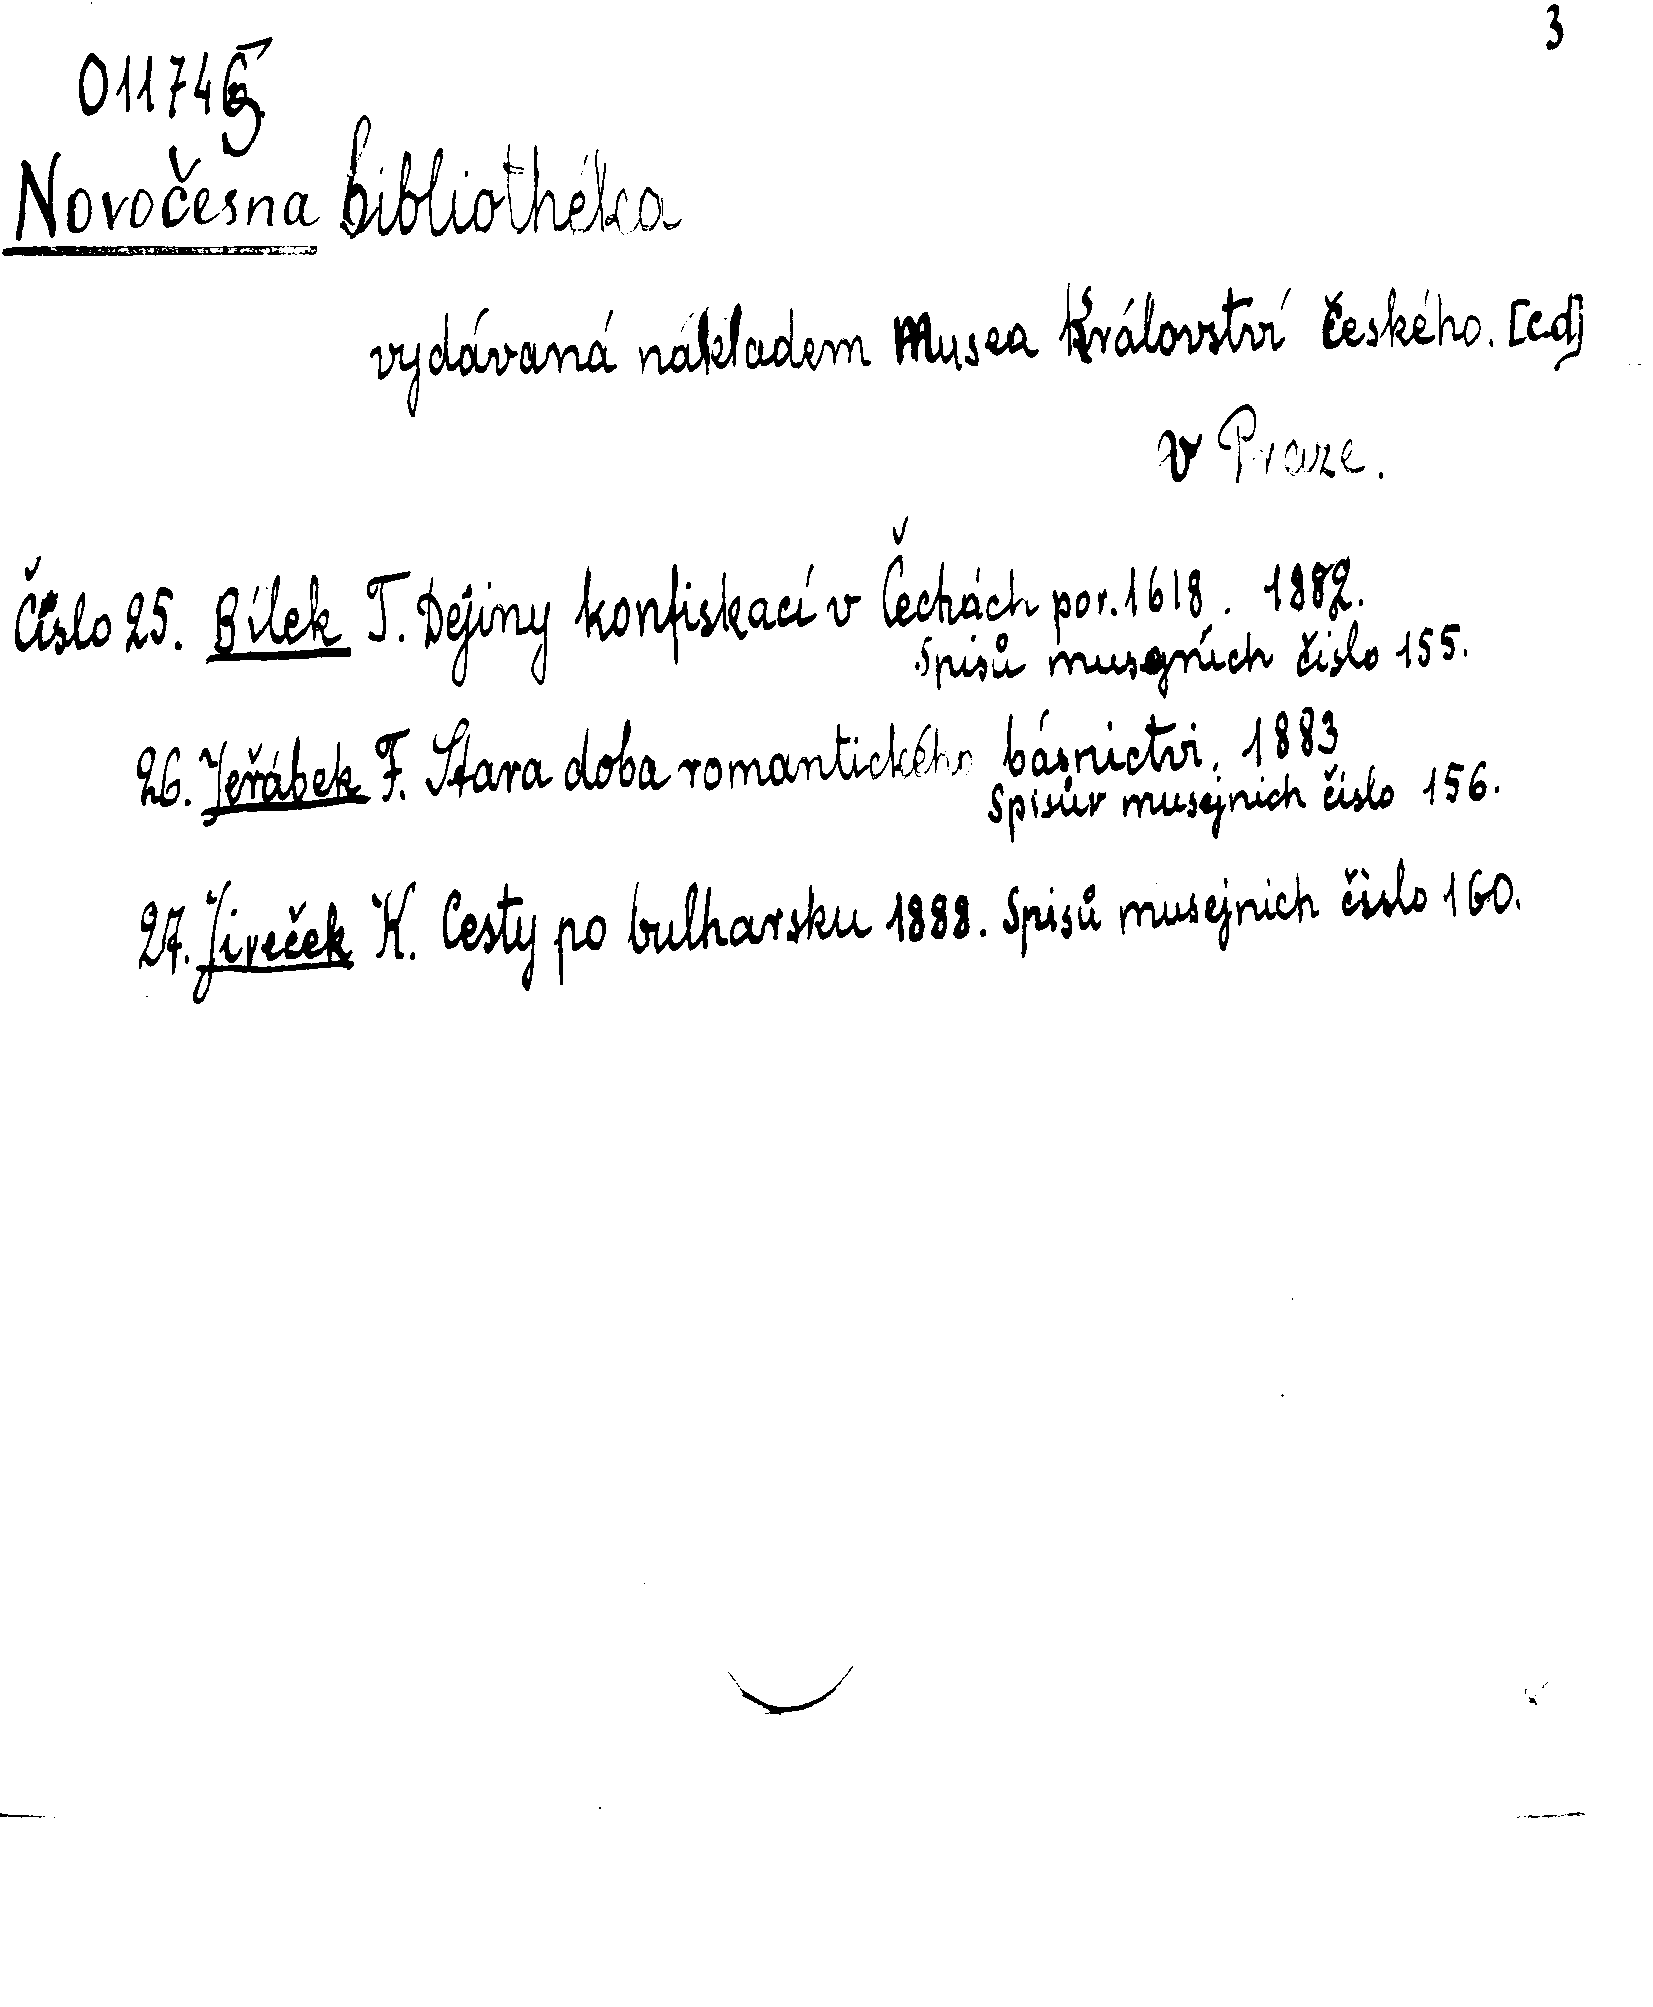 3
011745
Novočesna bibliothéka
vydávaná nákladem Musea Království českého. [cd]
v Praze.
Číslo 25. Bílek T. Dejiny konfiskací v Čechách por. 1618. 1882.
Spisů musejních čislo 155.
26. Jeřábek F. Stara doba romantického básnictvi. 1883
Spisův musejnich čislo 156.
27. Jireček K. Cesty po bulharsku 1888. Spisů musejnich čislo 160.